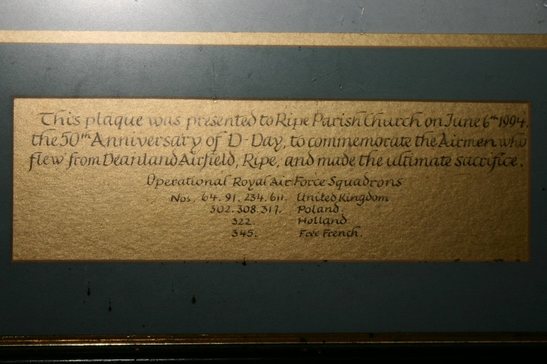 This plaque was presented to Ripe Parish Church on June 6th 1994,
the 50th Anniversary of D-Day, to commemorate the Airmen who
flew from Deanland Airfield, Ripe, and made the ultimate sacrifice.
Operational Royal Air Force Squadrons
Nos. 64. 91. 234. 611. United Kingdom
302. 308. 317. Poland
322. Holland
345. Free French.